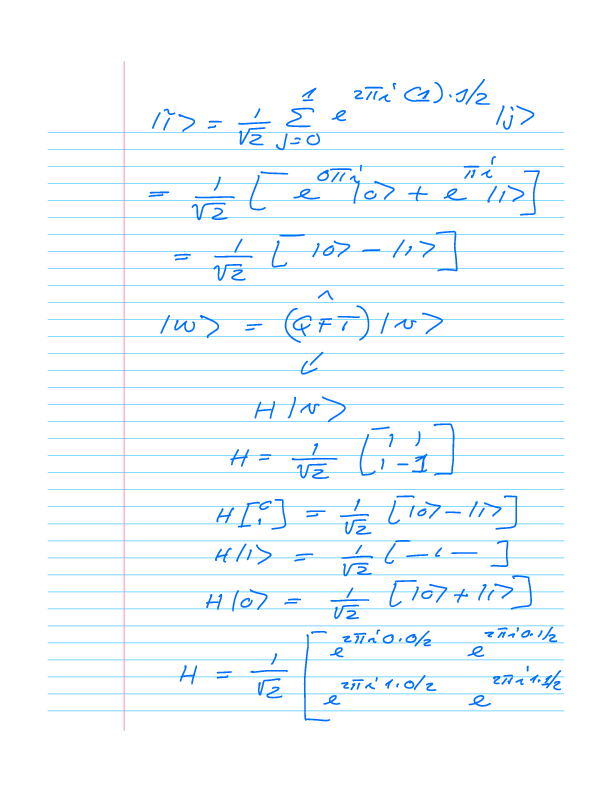 |ĩ> = 1/√2 Σ_{j=0}^{1} e^{2πi (1)·1/2} |j>
= 1/√2 [ e^{0πi} |0> + e^{πi} |1> ]
= 1/√2 [ |0> − |1> ]
|w> = (QF̂T) |v>
↙
H |v>
H = 1/√2 [ 1 1
1 −1 ]
H [0 1] = 1/√2 [ |0> − |1> ]
H |1> = 1/√2 [ — " — ]
H |0> = 1/√2 [ |0> + |1> ]
H = 1/√2 [ e^{2πi 0·0/2} e^{2πi 0·1/2}
e^{2πi 1·0/2} e^{2πi 1·1/2}